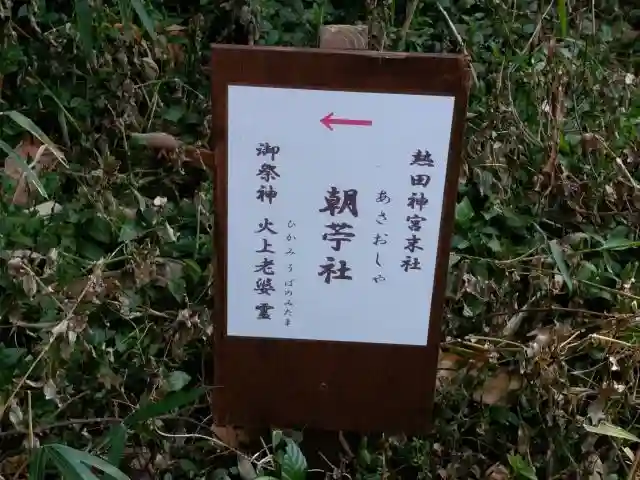 熱田神宮末社
朝苧社
あさおしや
御祭神 火上老婆霊
ひかみうばのみたま